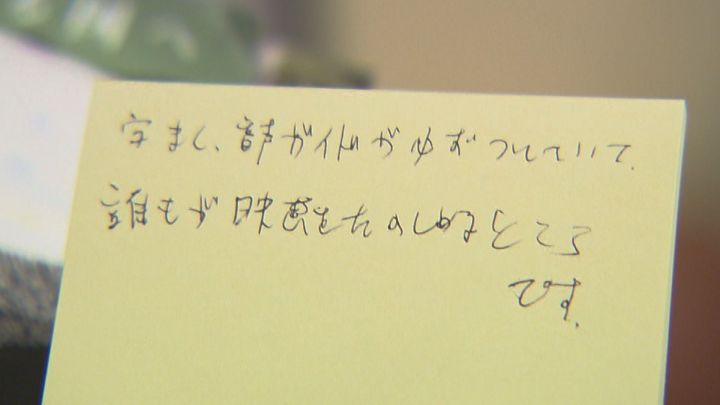 字まく、音声ガイドがかならずついていて、
誰もが映画をたのしめるところ
です。